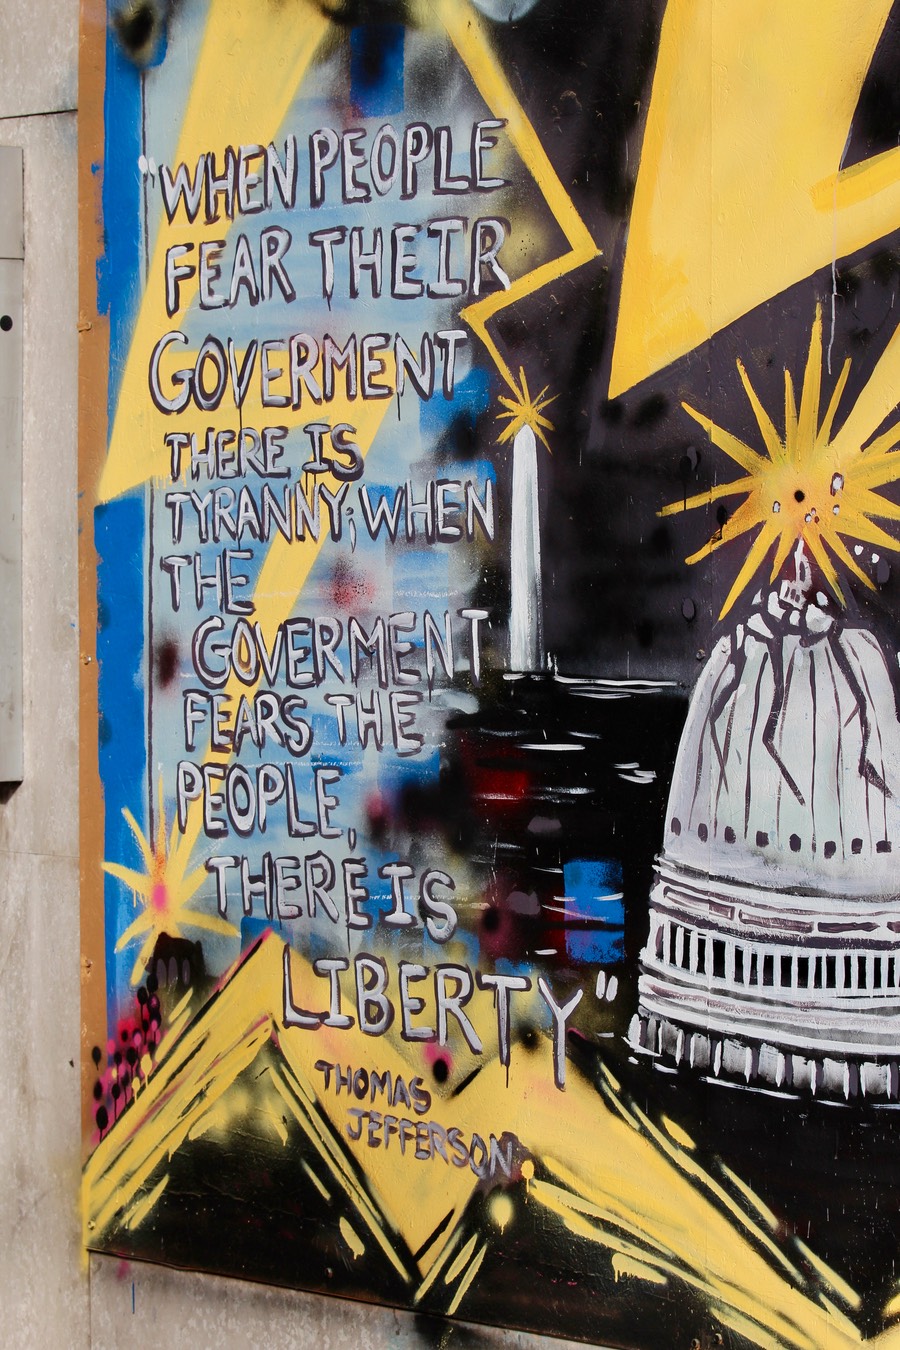 "WHEN PEOPLE
FEAR THEIR
GOVERMENT
THERE IS
TYRANNY; WHEN
THE
GOVERMENT
FEARS THE
PEOPLE,
THERE IS
LIBERTY"
THOMAS
JEFFERSON